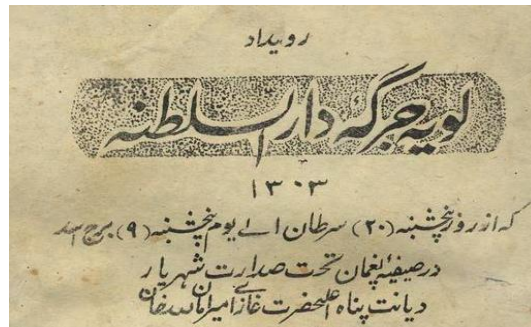 رویداد
لویه جرگهٔ دار السلطنه
۱۳۰۳
که از روز پنجشنبه (۲۰) سرطان الے یوم پنجشنبه (۹) برج اسد
در صیفیهٔ پغمان تحت صدارت سنے شهریار
دیانت پناه اعلیحضرت غازے امیر امان الله خان